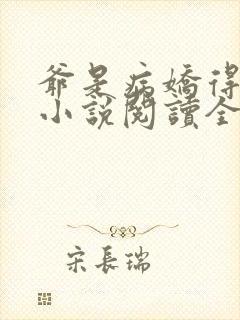 爺是病嬌得
小說閱讀全
宋長瑞